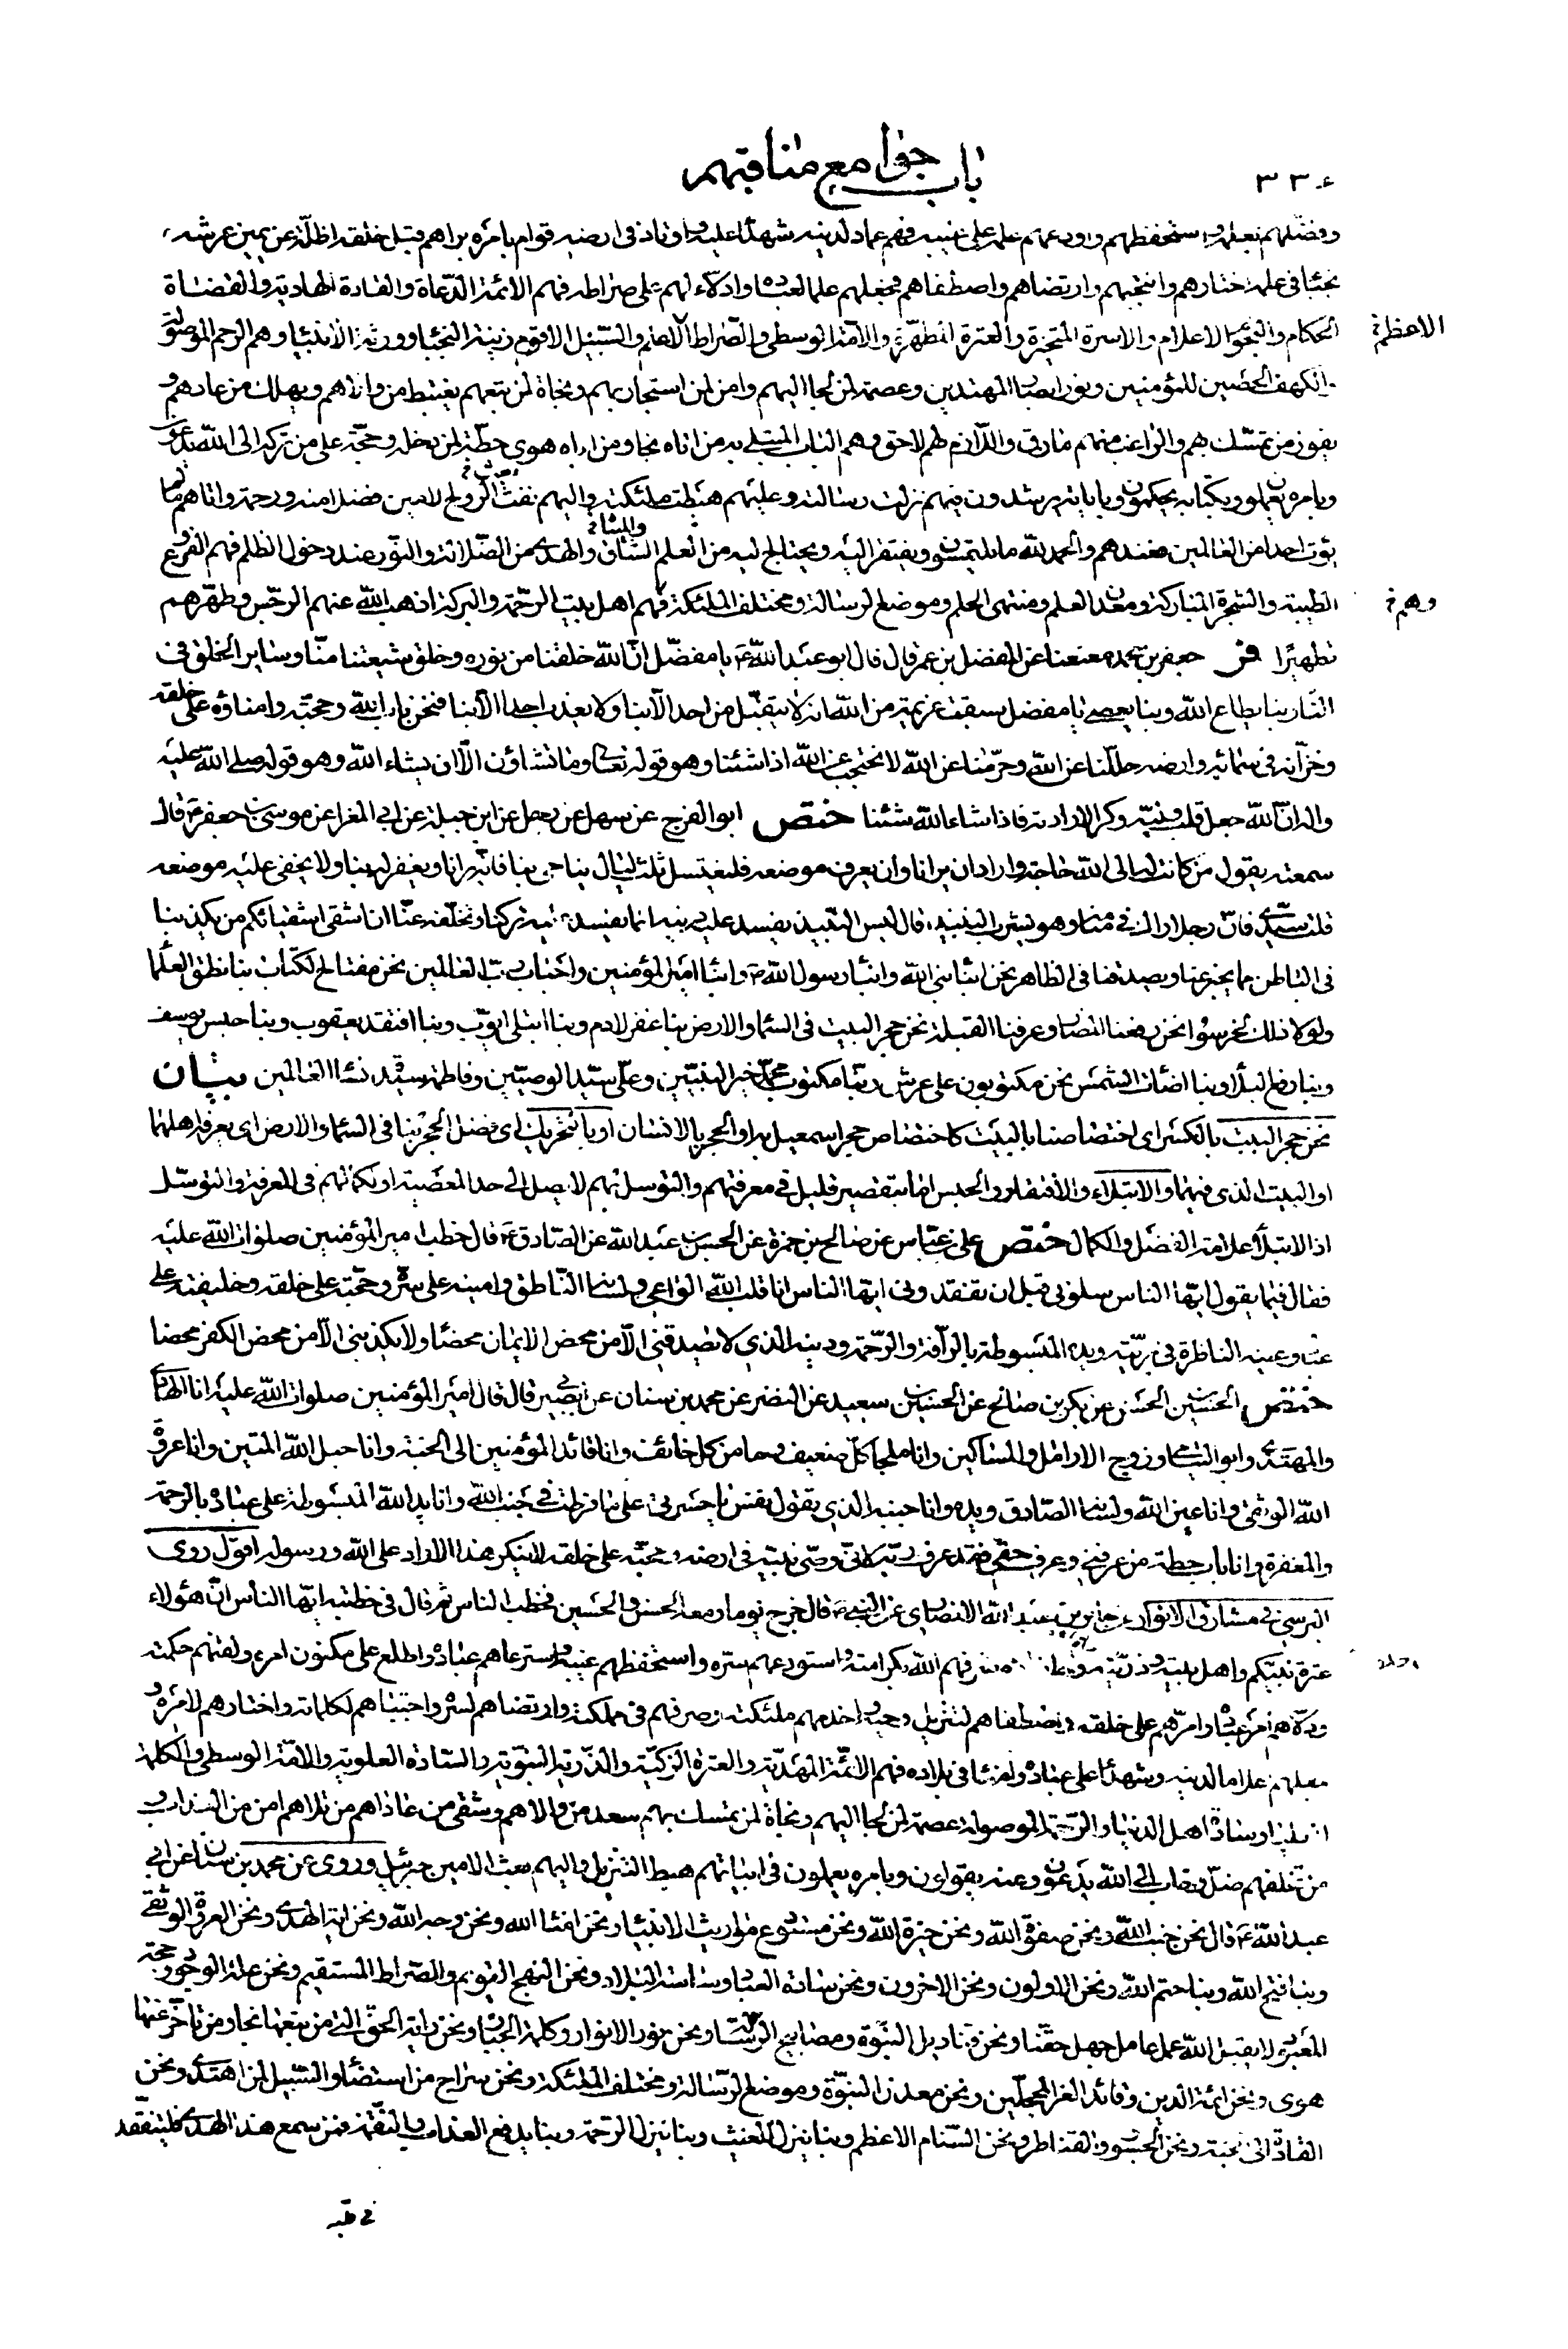 ٣٣٤
باب جوامع مناقبهم
وفضلهم بعلمه واستحفظهم واودعهم علمه على غيبه فهم عماد لدينه شهداء عليه واوتاد في ارضه قوام بامره براهم قبل خلقه اظلة عن يمين عرشه
نجباء في علمه اختارهم وانتجبهم وارتضاهم واصطفاهم فجعلهم علما لعباده وادلاء لهم على صراطه فهم الائمة الدعاة والقادة الهادية والقضاة
الحكام والنجوم الاعلام والاسرة المتخيرة والعترة المطهرة والامة الوسطى والصراط الاعلم والسبيل الاقوم زينة النجباء وورثة الانبياء وهم الرحم الموصولة
الاعظم خ
والكهف الحصين للمؤمنين ونور ابصار المهتدين وعصمة لمن لجا اليهم وامن لمن استجار بهم ونجاة لمن تبعهم يغتبط من والاهم ويهلك من عاداهم و
يفوز من تمسك بهم والراغب عنهم مارق واللازم لهم لاحق وهم الباب المبتلى به من اتاه نجا ومن اباه هوى حطة لمن دخله وحجة على من تركه الى الله يدعون
وبامره يعملون وبكتابه يحكمون وباياته يرشدون فيهم نزلت رسالته وعليهم هبطت ملئكته واليهم نفث الروح الامين فضلا منه ورحمة واتاهم ما لم
يؤت احدا من العالمين فعندهم والحمد لله ما يلتمسون ويفتقر اليه ويحتاج اليه من العلم الشاق والهدى من الضلالة والنور عند دخول الظلم فهم الفروع
الطيبة والشجرة المباركة ومعدن العلم ومنتهى الحلم وموضع الرسالة ومختلف الملئكة فهم اهل بيت الرحمة والبركة اذهب الله عنهم الرجس وطهرهم
وهم خ
تطهيرا فر جعفر بن محمد معنعنا عن المفضل بن عمر قال قال ابو عبد الله ع يا مفضل ان الله خلقنا من نوره وخلق شيعتنا منا وساير الخلق في
النار بنا يطاع الله وبنا يعصى يا مفضل سبقت عزيمة من الله انه لا يتقبل من احد الا بنا ولا يعذب احدا الا بنا فنحن باب الله وحجته وامناؤه على خلقه
وخزانه في سمائه وارضه حللنا عن الله وحرمنا عن الله لا نحتجب عن الله اذا شئنا وهو قوله تعالى وما تشاؤن الا ان يشاء الله وهو قوله صلى الله عليه
واله ان الله جعل قلب وليه وكر الارادته فاذا شاء الله شئنا ختص ابو الفرج عن سهل عن رجل عن ابن جبلة عن ابي المغرا عن موسى بن جعفر ع قال
سمعته يقول من كانت له الى الله حاجة واراد ان يرانا وان يعرف موضعه فليغتسل ثلث ليال يناجي بنا فانه يرانا ويغفر له بنا ولا يخفى عليه موضعه
قلت سيدي فان رجلا راك في منامه وهو يشرب النبيذ قال ليس النبيذ يفسد عليه دينه انما يفسد عليه تركنا وتخلفه عنا ان اشقى اشقيائكم من يكذبنا
في الباطن بما يخبر عنا ويصدقنا في الظاهر نحن ابناء نبي الله وابناء رسول الله ص وابناء امير المؤمنين واحباب رب العالمين نحن مفتاح الكتاب بنا نطق العلماء
ولولا ذلك لخرسوا نحن رفعنا المنار وعرفنا القبلة نحن حجر البيت في السماء والارض بنا غفر لادم وبنا ابتلي ايوب وبنا افتقد يعقوب وبنا حبس يوسف
وبنا رفع البلاء وبنا اضاءت الشمس نحن مكتوبون على عرش ربنا مكتوب محمد خير النبيين وعلي سيد الوصيين وفاطمة سيدة نساء العالمين بيان
نحن حجر البيت بالكسر اي اختصاصنا بالبيت كاختصاص حجر اسمعيل به او الحجر بالانسان او بالتحريك اي فضل الحجر بنا في السماء والارض اي يعرفه اهلهما
او البيت الذي فيهما والابتلاء والافتقاد والحبس اما بتقصير قليل في معرفتهم والتوسل بهم لا يصل الى حد المعصية او لكمالهم في المعرفة والتوسل
اذ الابتلاء علامة الفضل والكمال ختص علي بن عباس عن صالح بن حمزة عن الحسن بن عبد الله عن الصادق ع قال خطب امير المؤمنين صلوات الله عليه
فقال فيما يقول ايها الناس سلوني قبل ان تفقدوني ايها الناس انا قلب الله الواعي ولسانه الناطق وامينه على سره وحجته على خلقه وخليفته على
عباده وعينه الناظرة في بريته ويده المبسوطة بالرأفة والرحمة ودينه الذي لا يصدقني الا من محض الايمان محضا ولا يكذبني الا من محض الكفر محضا
ختص الحسين بن الحسن عن بكر بن صالح عن الحسين بن سعيد عن النضر عن محمد بن سنان عن ابي بصير قال قال امير المؤمنين صلوات الله عليه انا الهادي
والمهتدي وابو اليتامى وزوج الارامل والمساكين وانا ملجا كل ضعيف ومامن كل خائف وانا قائد المؤمنين الى الجنة وانا حبل الله المتين وانا عروة
الله الوثقى وانا عين الله ولسانه الصادق ويده وانا جنبه الذي يقول نفس يا حسرتى على ما فرطت في جنب الله وانا يد الله المبسوطة على عباده بالرحمة
والمغفرة وانا باب حطة من عرفني وعرف حقي فقد عرف ربه لاني وصي نبيه في ارضه وحجته على خلقه لا ينكر هذا الا راد على الله ورسوله اقول روى
البرسي في مشارق الانوار عن جابر بن عبد الله الانصاري عن النبي ص قال خرج يوما ومعه الحسن والحسين فخطب الناس ثم قال في خطبته ايها الناس ان هؤلاء
عترة نبيكم واهل بيته وذريته شرفهم الله بكرامته واستودعهم سره واستحفظهم غيبه واسترعاهم عباده واطلع على مكنون امره ولقنهم حكمته
وولاهم امر عباده وامرهم على خلقه واصطفاهم لتنزيله واخدمهم ملئكته وصرفهم في مملكته وارتضاهم لسره واجتباهم لكلماته واختارهم لامره و
جعلهم اعلاما لدينه وشهداء على عباده وامناء في بلاده فهم الائمة المهدية والعترة الزكية والذرية النبوية والسادة العلوية والامة الوسطى والكلمة
العليا وسادة اهل الدنيا والرحمة الموصولة عصمة لمن لجا اليهم ونجاة لمن تمسك بهم سعد من والاهم وشقي من عاداهم من تلاهم امن من العذاب و
من تخلفهم ضل وخاب الى الله يدعون وعنه يقولون وبامره يعملون في ابياتهم هبط التنزيل واليهم بعث الامين جبرئيل وروى عن محمد بن سنان عن ابي
عبد الله ع قال نحن جنب الله ونحن صفوة الله ونحن خيرة الله ونحن مستودع مواريث الانبياء ونحن امناء الله ونحن وجه الله ونحن اية الهدى ونحن العروة الوثقى
وبنا فتح الله وبنا ختم الله ونحن الاولون ونحن الاخرون ونحن ساده العباد وساسة البلاد ونحن النهج القويم والصراط المستقيم ونحن علة الوجود وحجة
المعبود لا يقبل الله عمل عامل جهل حقنا ونحن قناديل النبوة ومصابيح الرسالة ونحن نور الانوار وكلمة الجبار ونحن راية الحق التي من تبعها نجا ومن تاخر عنها
هوى ونحن ائمة الدين وقائد الغر المحجلين ونحن معدن النبوة وموضع الرسالة ومختلف الملئكة ونحن سراج من استضاء والسبيل لمن اهتدى ونحن
القادة الى الجنة ونحن الجسور والقناطر ونحن السنام الاعظم وبنا ينزل الغيث وبنا ينزل الرحمة وبنا يدفع العذاب والنقمة فمن سمع هذا الهدى فليتفقد
في قلبه